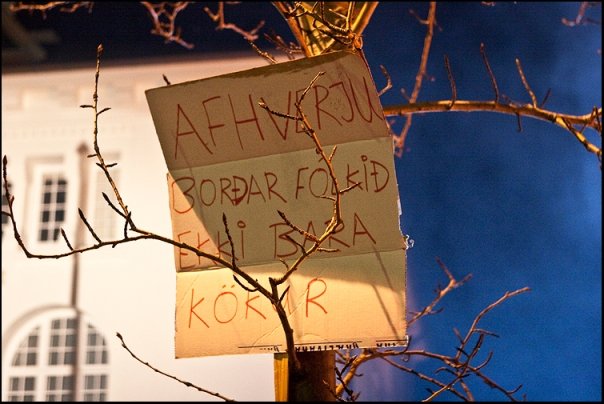 AFHVERJU
BORÐAR FÓLKIÐ
EKKI BARA
KÖKUR